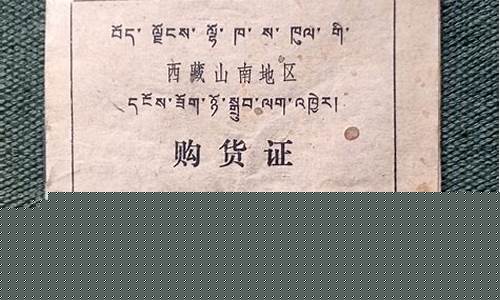 བོད་ ལྗོངས་ ལྷོ་ ཁ་ ས་ ཁུལ་ གི་
西藏山南地区
དངོས་ཟོག་ཉོ་སྒྲུབ་ལག་འཁྱེར།
购货证